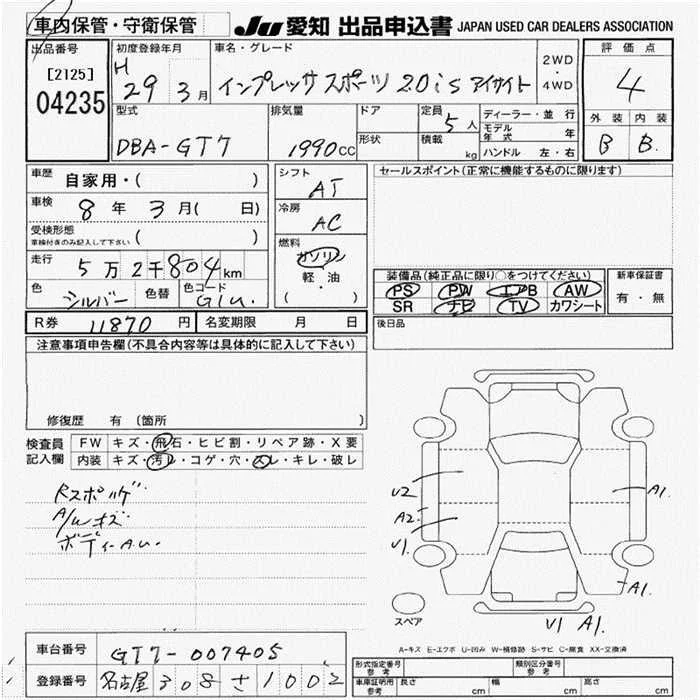 車内保管・守衛保管
JU 愛知 出品申込書 JAPAN USED CAR DEALERS ASSOCIATION
出品番号
[2125]
04235
初度登録年月
H 29 3月
車名・グレード
インプレッサ スポーツ 2.0is アイサイト
2WD
・
4WD
評価点
4
外装 内装
B B.
型式
DBA-GT7
排気量
1990cc
ドア
形状
定員
5人
積載
kg
ディーラー・並行
モデル年式 年
ハンドル 左・右
車歴 自家用・( )
車検 8年3月( 日)
受検形態
車検付きのみ記入して下さい ( )
走行 5万2千804km
色 シルバー 色替 色コード G1U.
シフト
AT
冷房
AC
燃料
ガソリン
軽・油
・
( )
セールスポイント(正常に機能するものに限ります)
装備品(純正品に限り○をつけてください)
PS PW エアB AW
SR ナビ TV カワシート
新車保証書
有・無
R券 11870円 名変期限 月 日
後日品
注意事項申告欄(不具合内容等は具体的に記入して下さい)
修復歴 有 〔箇所 〕
検査員記入欄
FW キズ・飛石・ヒビ割・リペア跡・X要
内装 キズ・汚レ・コゲ・穴・スレ・キレ・破レ
A/Wキズ
ボディーA.U.
U2
A2.
U1.
A1.
A1.
U1 A1.
スペア
A-キズ E-エクボ U-凹み W-補修跡 S-サビ C-腐食 XX-交換済
車台番号 GT7-007405
登録番号 名古屋 308 さ 1002
形式指定番号 参考
類別区分番号 参考
車庫証明用 参考 長さ cm 幅 cm 高さ cm